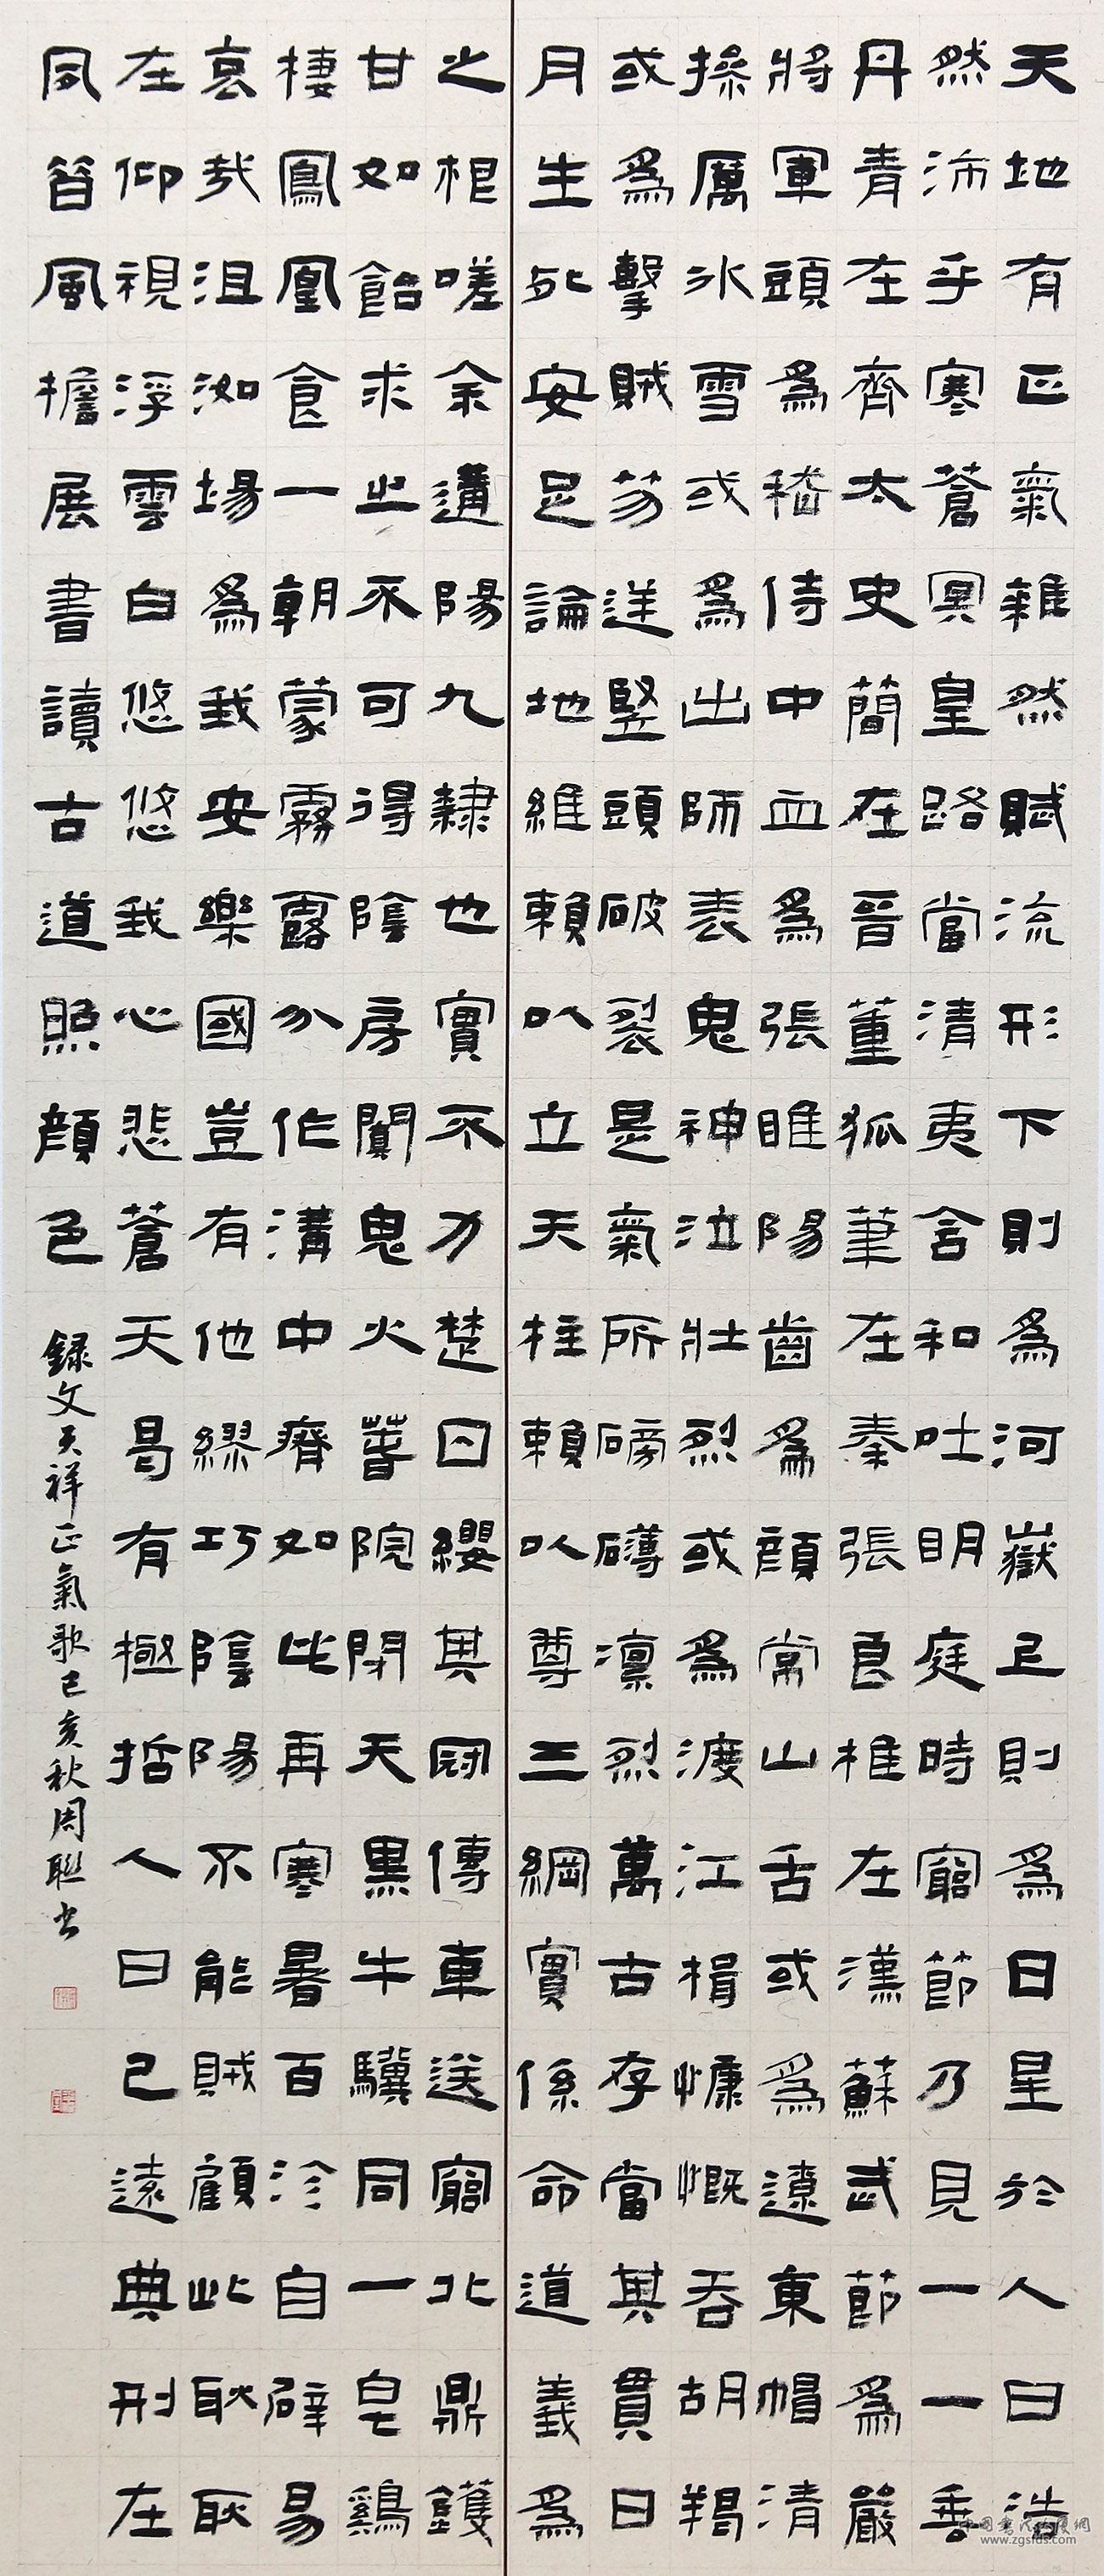 天地有正氣雜然賦流形下則爲河嶽上則爲日星於人曰浩
然沛乎寒蒼冥皇路當清夷含和吐明庭時窮節乃見一一垂
丹青在齊太史簡在晉董狐筆在秦張良椎在漢蘇武節爲嚴
將軍頭爲嵇侍中血爲張睢陽齒爲顏常山舌或爲遼東帽清
操厲冰雪或爲出師表鬼神泣壯烈或爲渡江楫慷慨吞胡羯
或爲擊賊笏逆豎頭破裂是氣所磅礴凜烈萬古存當其貫日
月生死安足論地維賴以立天柱賴以尊三綱實係命道義爲
之根嗟余遘陽九隸也實不力楚囚纓其冠傳車送窮北鼎鑊
甘如飴求之不可得陰房闃鬼火春院閉天黑牛驥同一皂鷄
棲鳳凰食一朝蒙霧露分作溝中瘠如此再寒暑百沴自辟易
哀哉沮洳場爲我安樂國豈有他繆巧陰陽不能賊顧此耿耿
在仰視浮雲白悠悠我心悲蒼天曷有極哲人日已遠典刑在
夙昔風檐展書讀古道照顏色
録文天祥正氣歌己亥秋周聯書
www.zgsfds.com